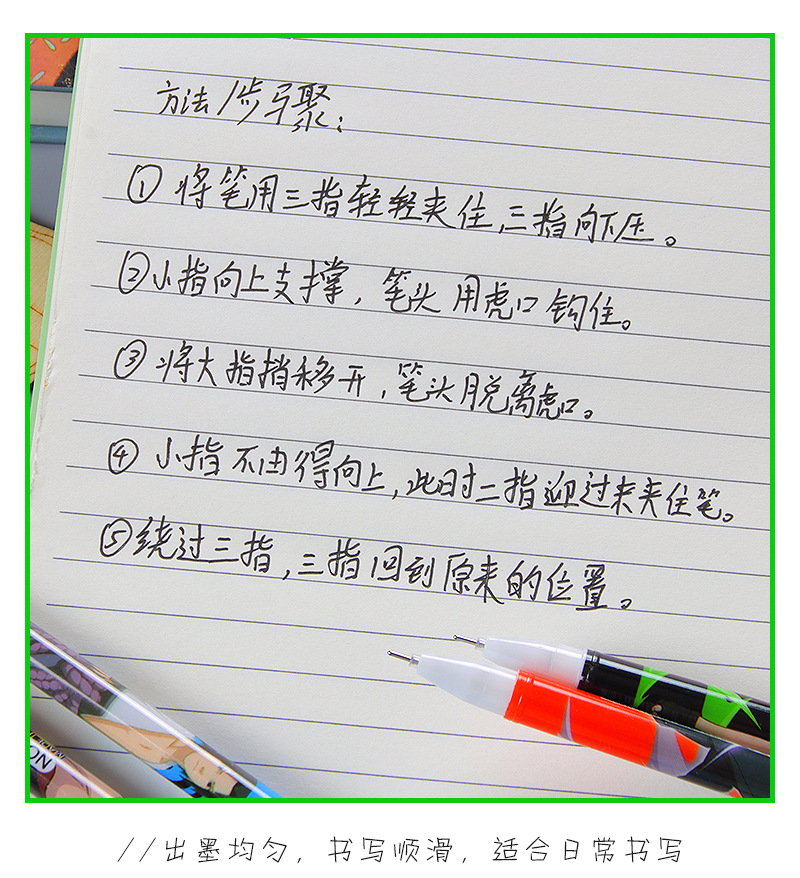 方法/步骤:
①将笔用三指轻轻夹住,三指向下压。
②小指向上支撑,笔头用虎口钩住。
③将大指挡移开,笔头脱离虎口。
④小指不由得向上,此时二指迎过来夹住笔。
⑤绕过三指,三指回到原来的位置。
//出墨均匀，书写顺滑，适合日常书写